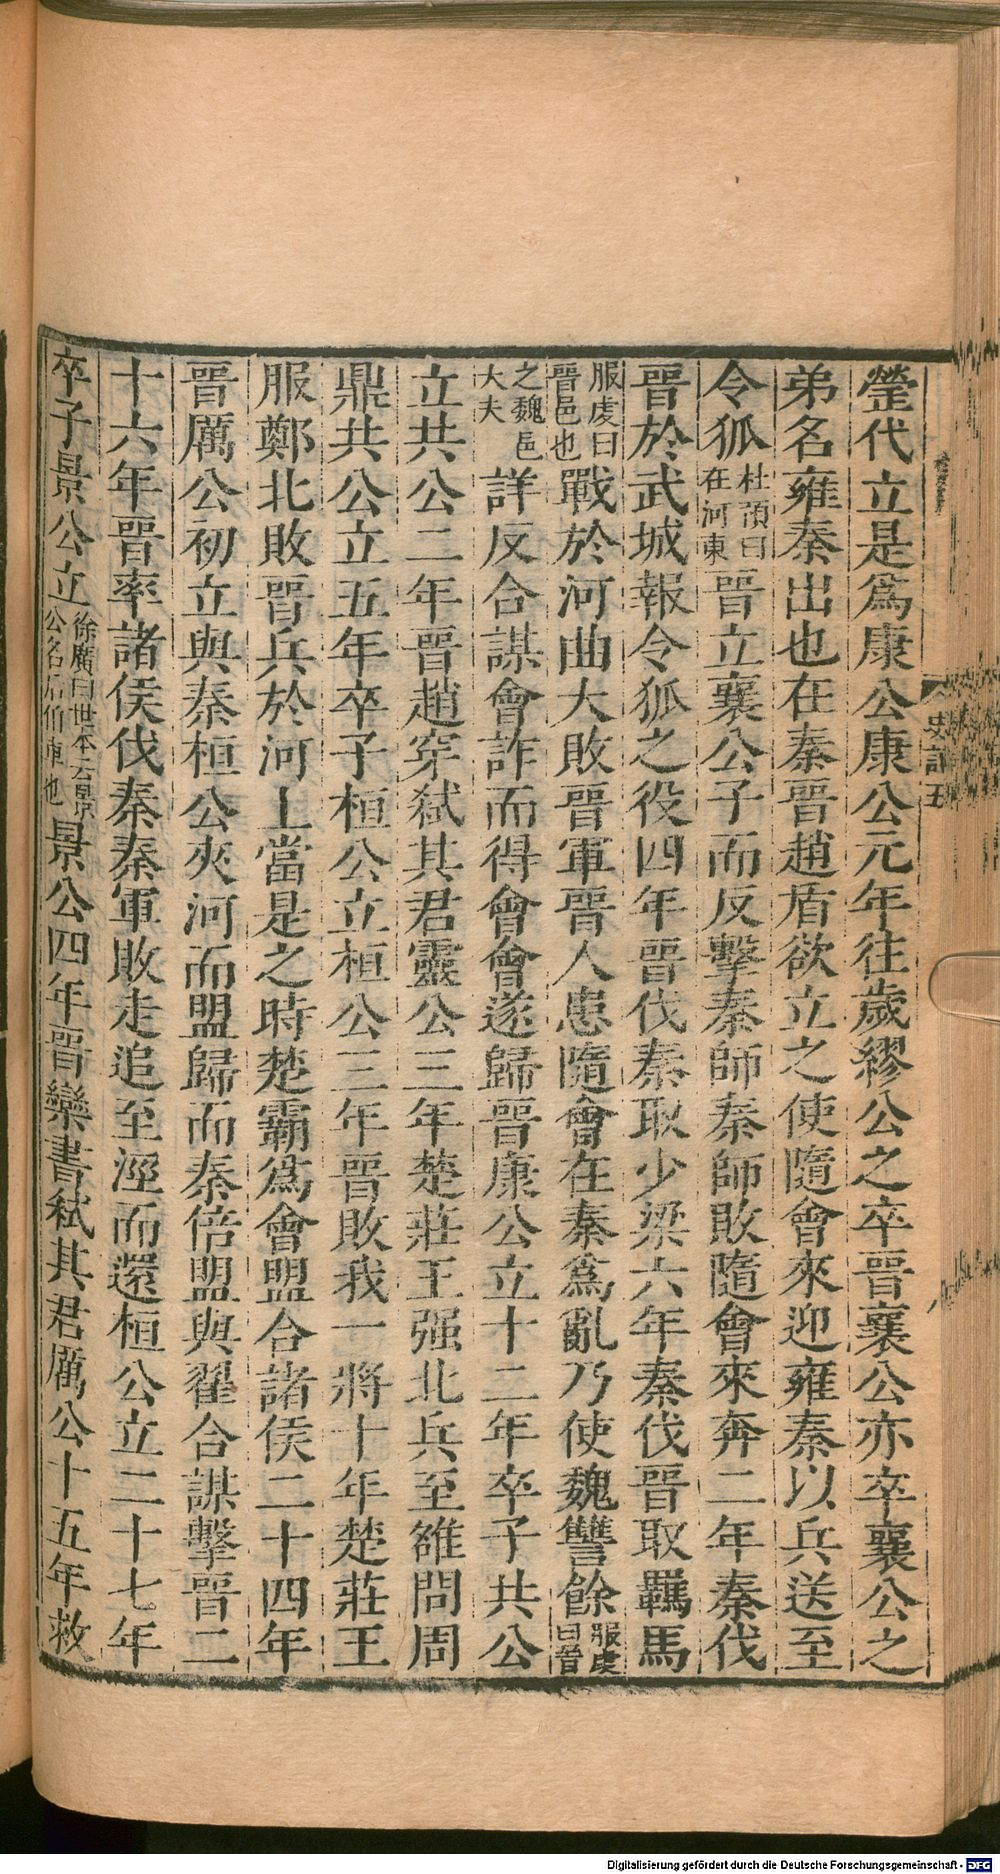 瑩代立是爲康公康公元年往歲繆公之卒晉襄公亦卒襄公之
弟名雍秦出也在秦晉趙盾欲立之使隨會來迎雍秦以兵送至
令狐杜預曰在河東晉立襄公子而反擊秦師秦師敗隨會來奔二年秦伐
晉於武城報令狐之役四年晉伐秦取少梁六年秦伐晉取羈馬
服虔曰晉邑也戰於河曲大敗晉軍晉人患隨會在秦爲亂乃使魏讐餘服虔曰晉
之魏邑大夫詳反合謀會詐而得會會遂歸晉康公立十二年卒子共公
立共公二年晉趙穿弑其君靈公三年楚莊王强北兵至雒問周
鼎共公立五年卒子桓公立桓公三年晉敗我一將十年楚莊王
服鄭北敗晉兵於河上當是之時楚霸爲會盟合諸侯二十四年
晉厲公初立與秦桓公夾河而盟歸而秦倍盟與翟合謀擊晉二
十六年晉率諸侯伐秦秦軍敗走追至涇而還桓公立二十七年
卒子景公立徐廣曰世本云景公名后伯車也景公四年晉欒書弑其君厲公十五年救
史記五
Digitalisierung gefördert durch die Deutsche Forschungsgemeinschaft - DFG